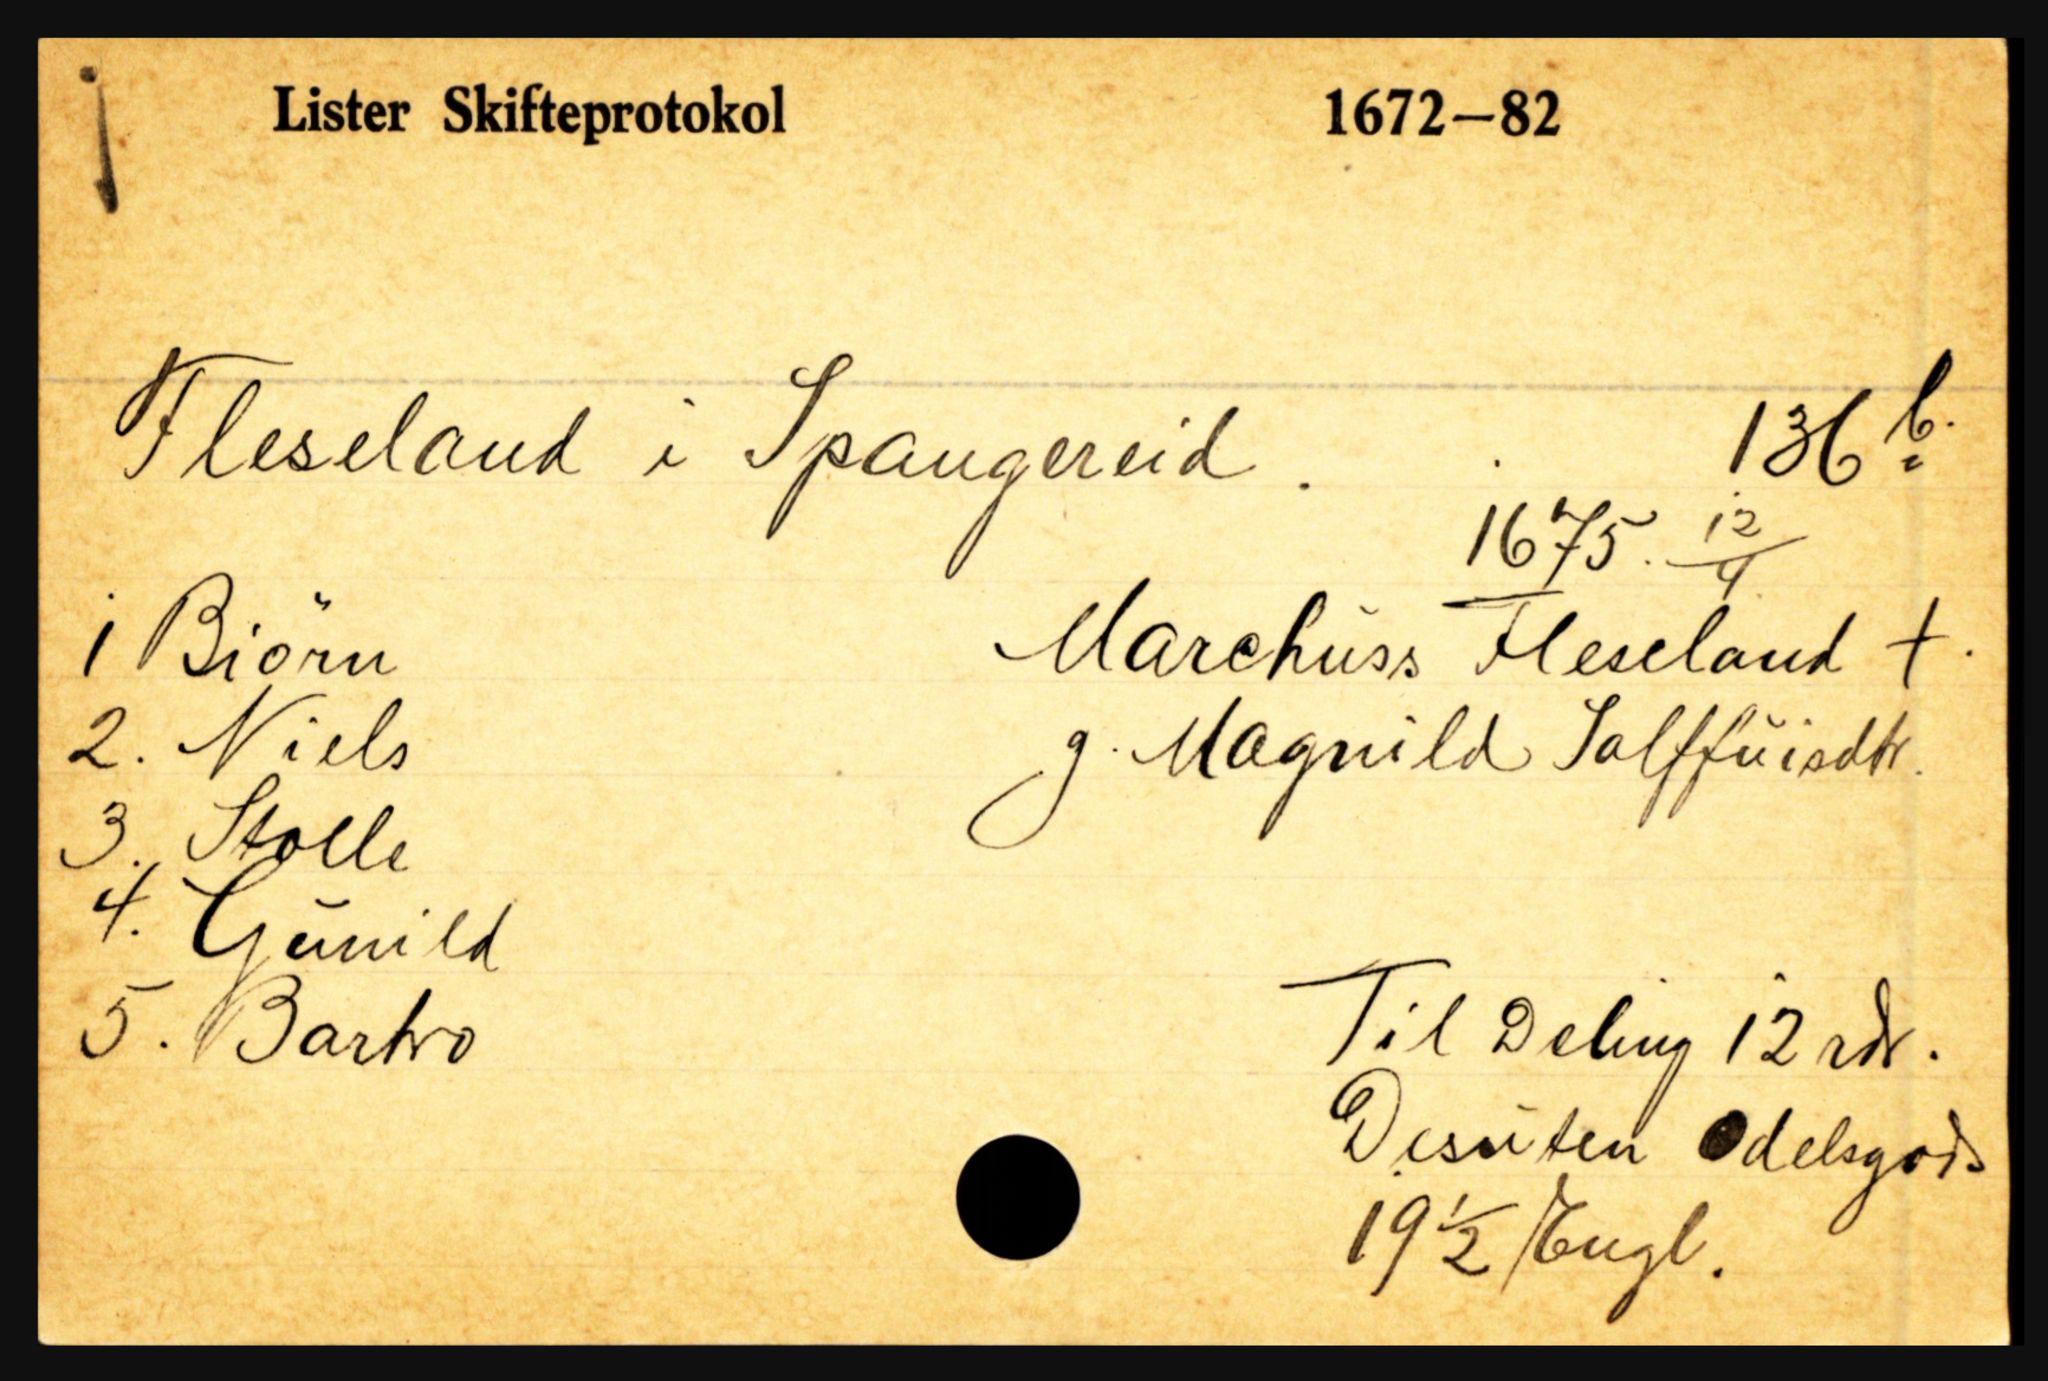 1
Lister Skifteprotokol 1672—82
Fleseland i Spangereid. 136 b.
1675. 12/4
1 Biörn Marchuss Fleseland †.
2. Niels g. Magnild Salffuisdtr.
3. Stolle
4. Gunild
5. Barbro
Til Deling 12 rdr.
Desuten Odelsgods
19 1/2 Engl.